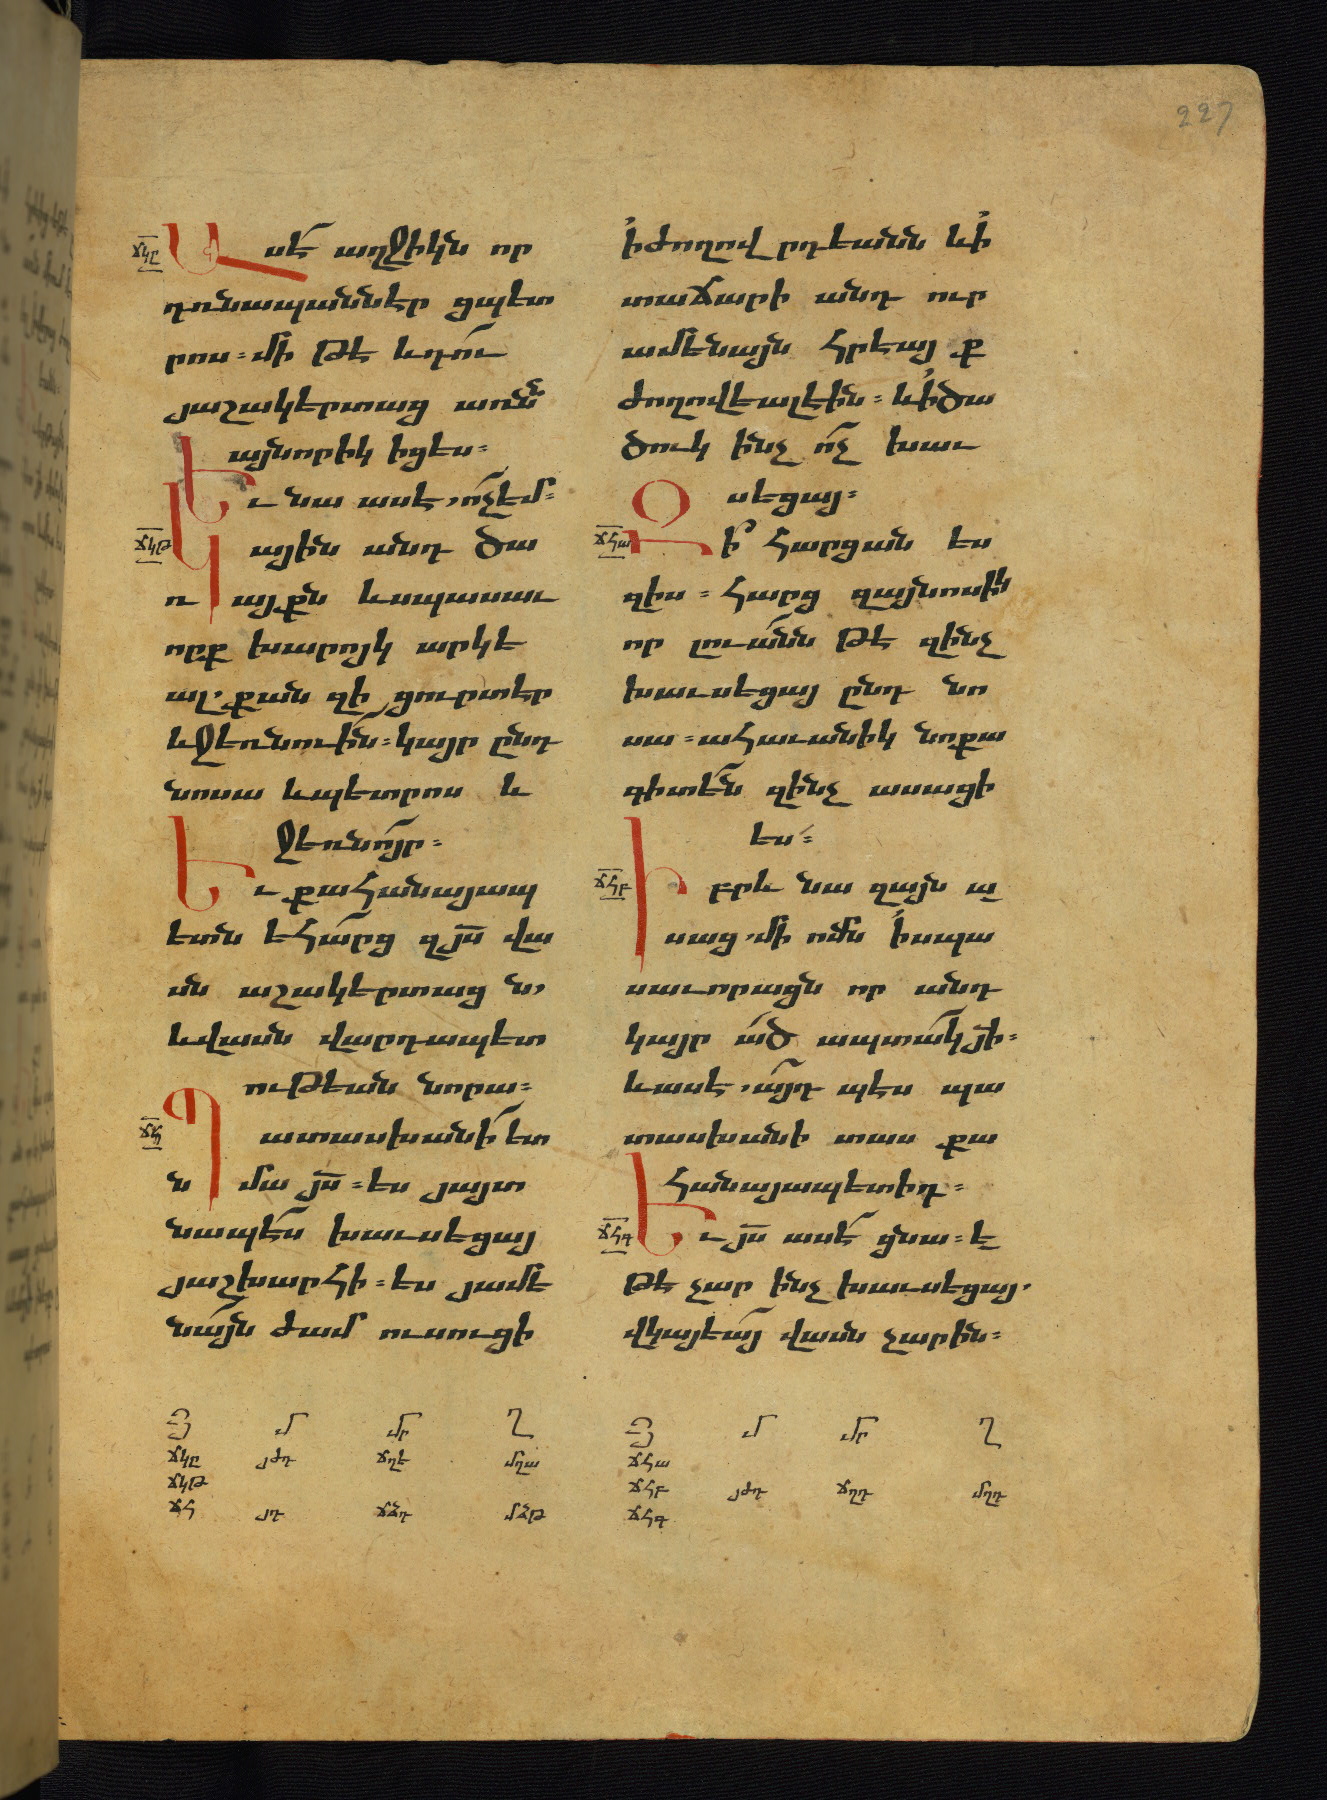 227
ՃԿԸ
Ասէ աղջիկն որ
դռնապանններ ցպետ
րոս։ մի թէ և դու
յաշակերտաց առնն
այնորիկ իցես։
Եւ նա ասէ, ոչ եմ։
ՃԿԹ
Կային անդ ծա
ռ այքն և սպասաւ
որք խարոյկ արկե
ալ, քան զի ցուրտ էր
և ջեռնուին։ կայր ընդ
նոսա և պետրոս և
ջեռնոյր։
Եւ քահանայապ
ետն եհարց զյս վա
սն աշակերտաց ն՛
և վասն վարդապետ
ութեան նորա։
ՃՀ
Պատասխանի ետ
ն մա յս։ ես յայտ
նապէս խաւսեցայ
յաշխարհի։ ես յամե
նայն ժամ ուսուցի
ի ժողովրդեանն և ի
տաճարի անդ ուր
ամենայն հրեայ ք
ժողովեալ էին։ և ի ծա
ծուկ ինչ ոչ խաւ
սեցայ։
ՃՀԱ
Զի՞ հարցան ես
զիս։ հարց զայնոսիկ
որ լուանն թէ զինչ
խաւսեցայ ընդ նո
սա։ ահաւանիկ նոքա
գիտեն զինչ ասացի
ես։
ՃՀԲ
Իբրև նա զայն ա
սաց, մի ոմն ի սպա
սաւորացն որ անդ
կայր ած ապտակ յի։
և ասէ, այդ պէս պա
տասխանի տաս քա
հանայապետիդ։
ՃՀԳ
Եւ յս ասէ ցնա։ է
թէ չար ինչ խաւսեցայ,
վկայեայ վասն չարին։
Յ մ մր Ղ
ՃԿԸ յժդ ՃՂԷ մղա
ՃԿԹ
ՃՀ յդ ՃՃԴ մՃԹ
Յ մ մր Ղ
ՃՀԱ
ՃՀԲ յժդ ՃՂԴ մղդ
ՃՀԳ